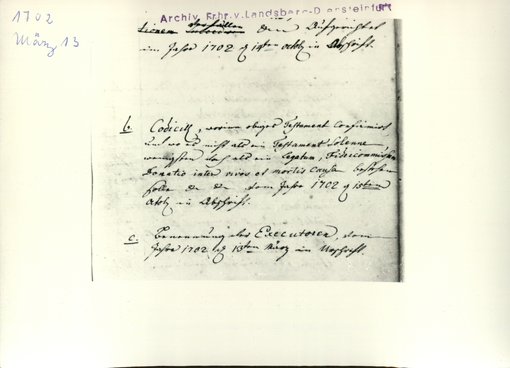 1702
März 13
Archiv Frhr. v. Landsberg-D einsteinfurt
im Jahr 1702 d 14ten octob in Abschrift.
b. Codicill, worin obiges Testament confirmirt
und wo es nicht als ein Testament solenne
wenigstens doch als ein Legatum, Fideicommissum
Donatio inter vivos et mortis causa bestehen
solle de dem Jahr 1702 d 15ten
octob in Abschrift.
c. Benennung der Executoren vom
Jahre 1702 d 13ten März in Abschrift.